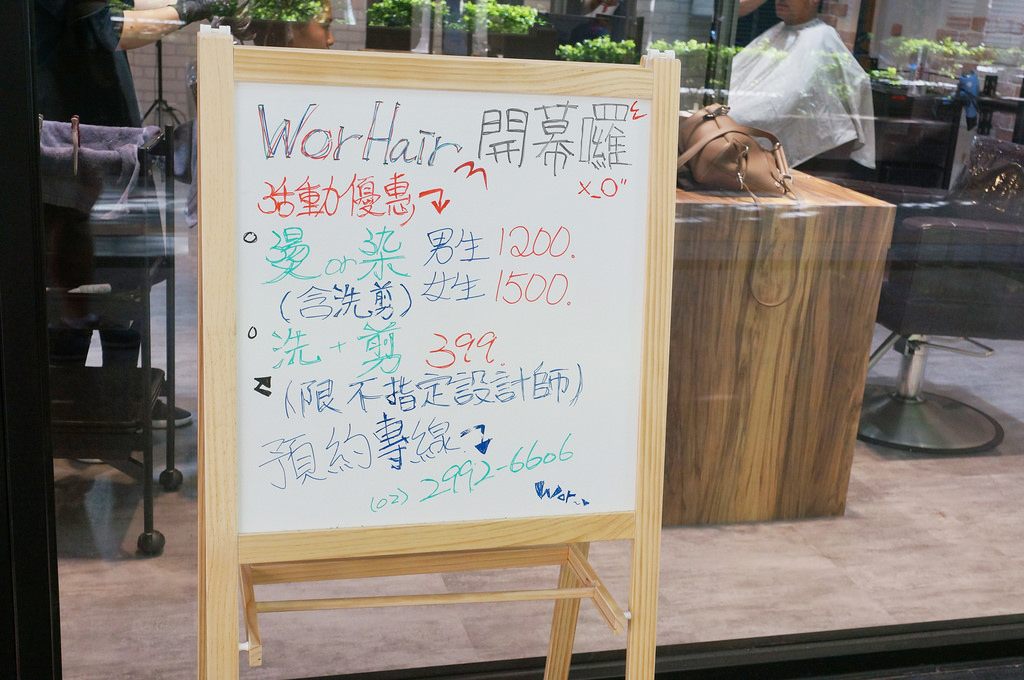 WorHair 開幕囉
x_0"
活動優惠
燙or染 男生 1200.
(含洗剪) 女生 1500.
洗+剪 399.
(限不指定設計師)
預約專線
(02) 2992-6606
Wor